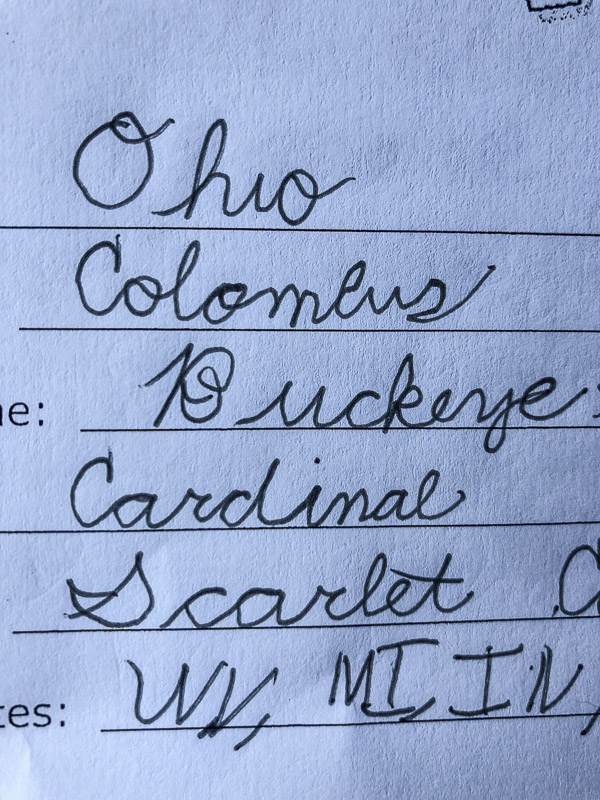 Ohio
Colombus
ne: Buckeye
Cardinal
Scarlet C
tes: WV, MI, IN,